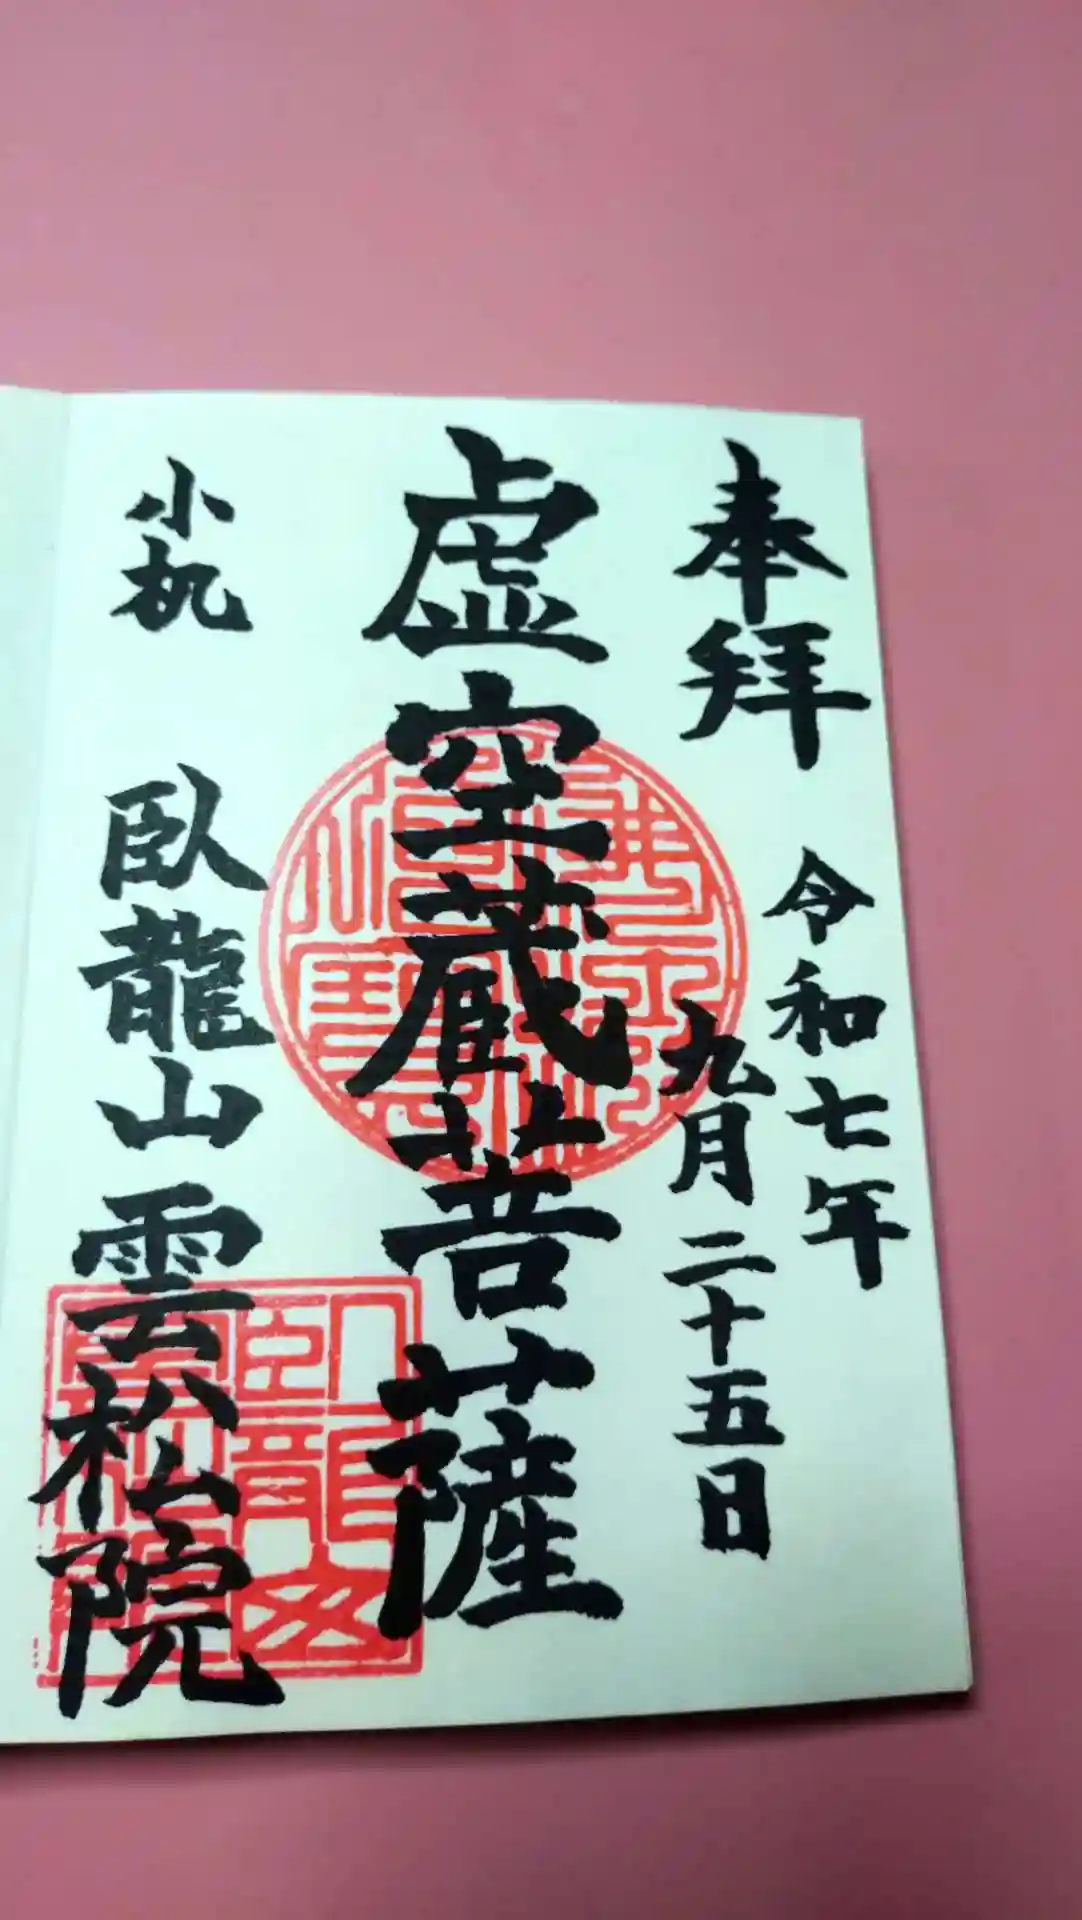 奉拝
令和七年
九月二十五日
虚空蔵菩薩
小机
臥龍山雲松院